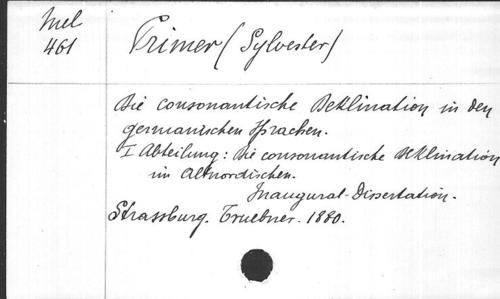 Mel
461
Primer (Sylvester)
Die consonantische Deklination in den
germanischen Sprachen.
I Abteilung: Die consonantische Deklination
im Altnordischen.
Inaugural-Dissertation.
Strassburg. Truebner. 1880.